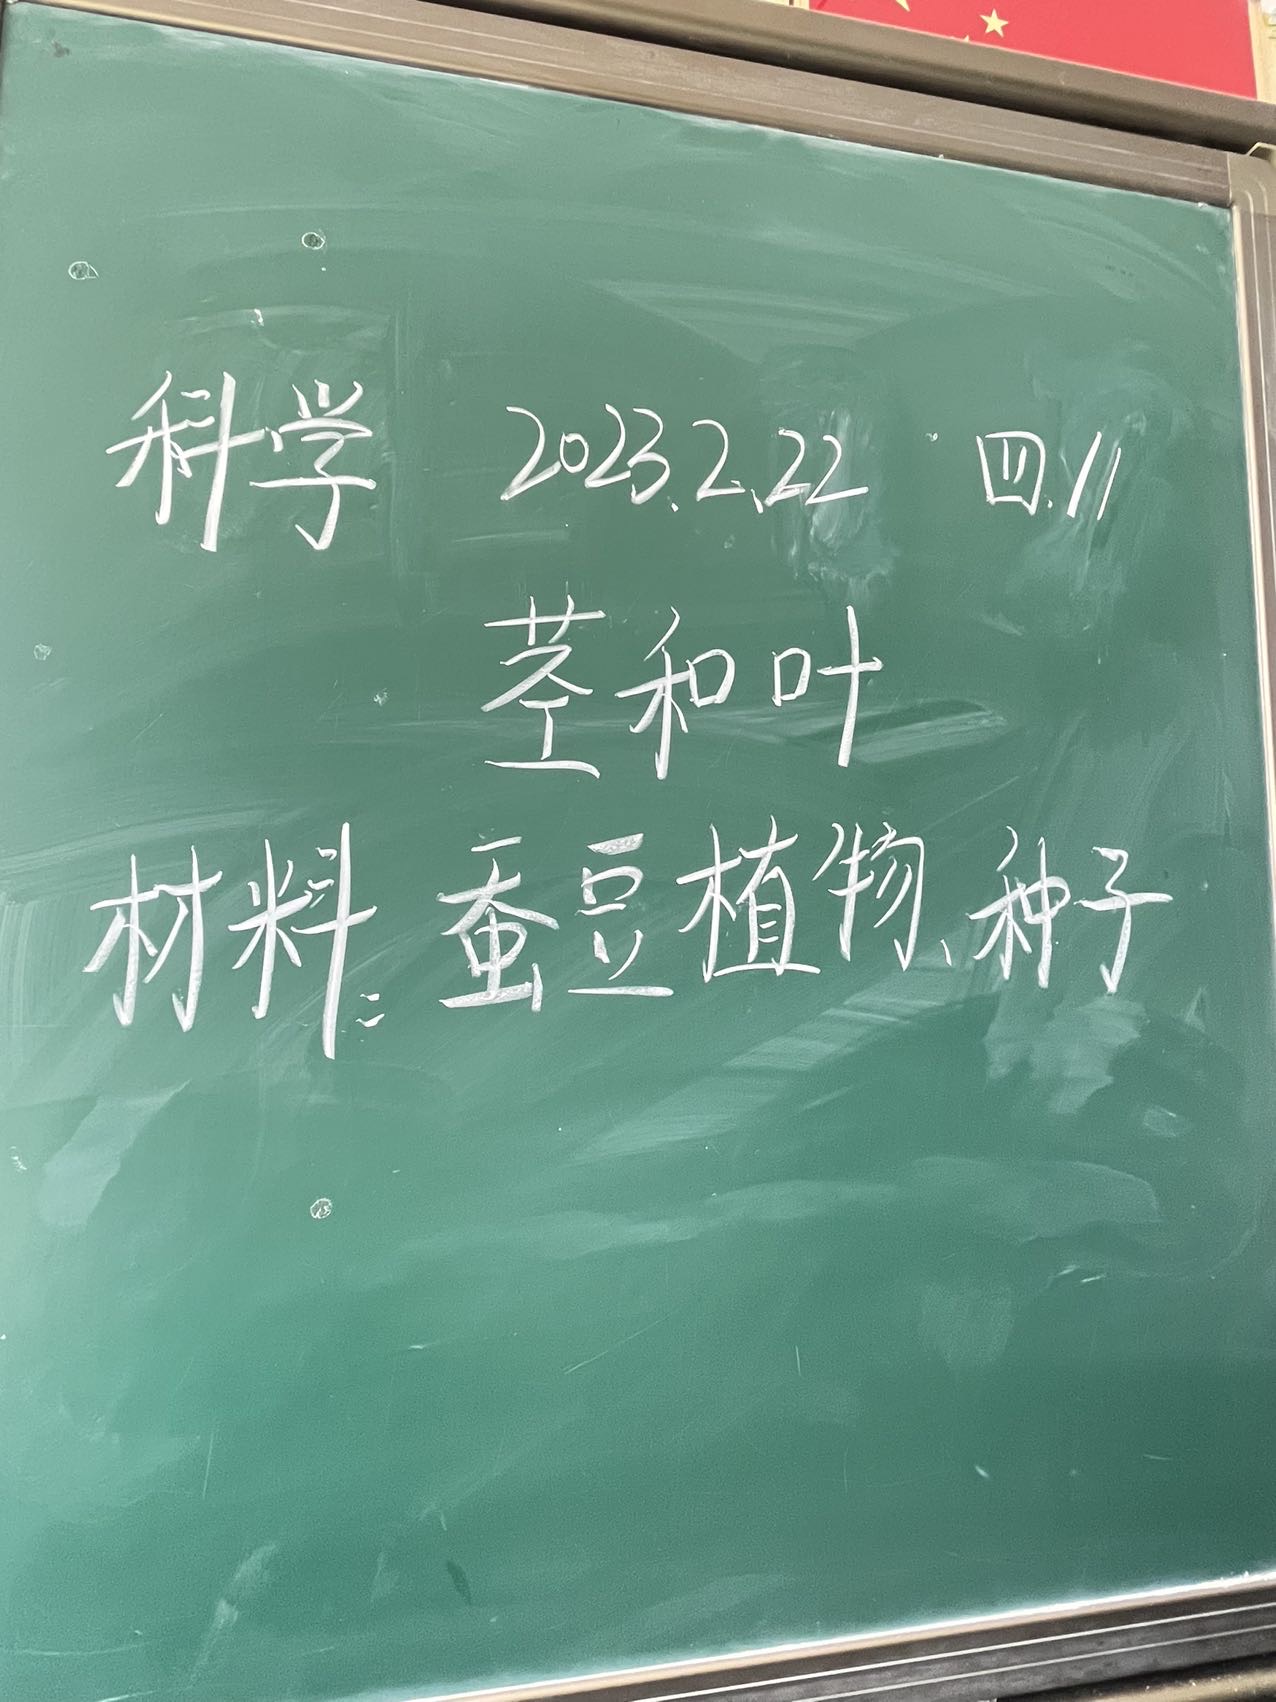 科学 2023.2.22 四.11
茎和叶
材料：蚕豆植物、种子